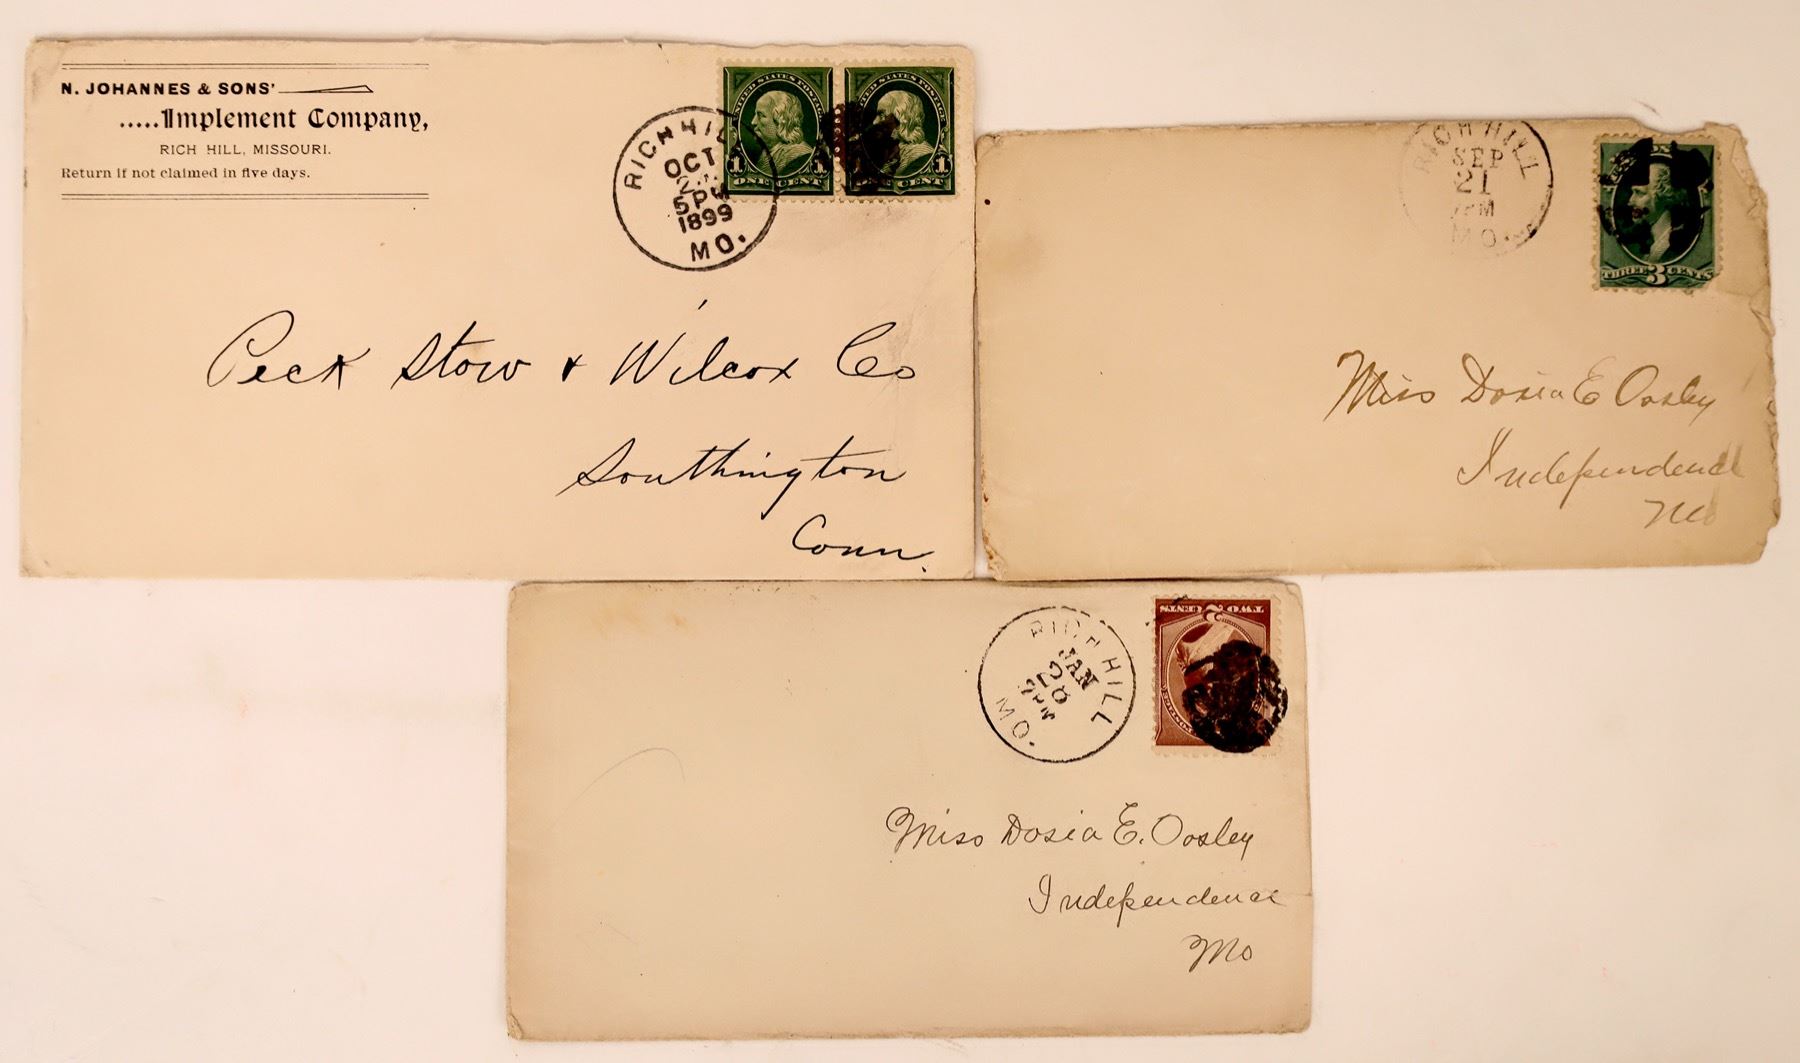 N. JOHANNES & SONS'
.....Implement Company,
RICH HILL, MISSOURI.
Return if not claimed in five days.
RICH HILL
OCT
5 PM
1899
MO.
UNITED STATES POSTAGE
1 ONE CENT 1
UNITED STATES POSTAGE
ONE CENT 1
Peck Stow & Wilcox Co
Southington
Conn.
RICH HILL
SEP
21
PM
MO.
THREE 3 CENTS
Miss Dosia E Oosley
Independence
Mo
RICH HILL
JAN
28
PM
MO.
TWO 2 CENTS
Miss Dosia E. Oosley
Independence
Mo